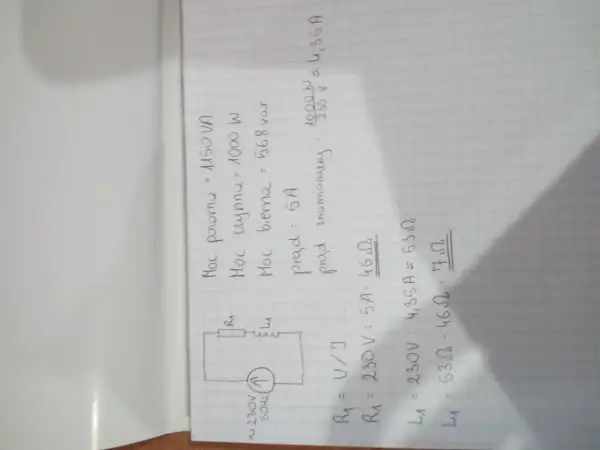 Moc pozorna = 1150 VA
Moc czynna = 1000 W
Moc bierna = 568 var
prąd = 5A
prąd znamionowy: 1000W / 230 V ≈ 4,35A
≈ 230V
50Hz
R1
L1
R1 = U/I
R1 = 230V : 5A = 46Ω
L1 = 230V : 4,35A ≈ 53Ω
L1 = 53Ω - 46Ω = 7Ω